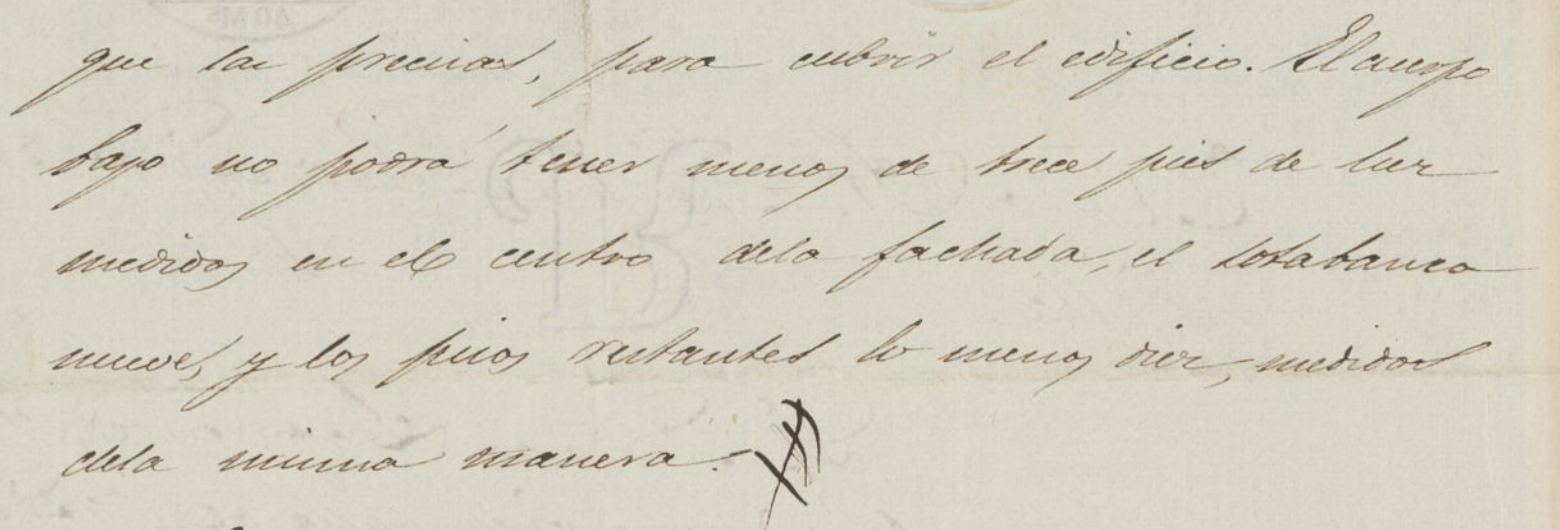 que las precisas, para cubrir el edificio. El cuerpo
bajo no podrá tener menos de trece pies de luz
medidos en el centro dela fachada, el sotabanco
nueve, y los pisos restantes lo menos diez, medidos
dela misma manera.